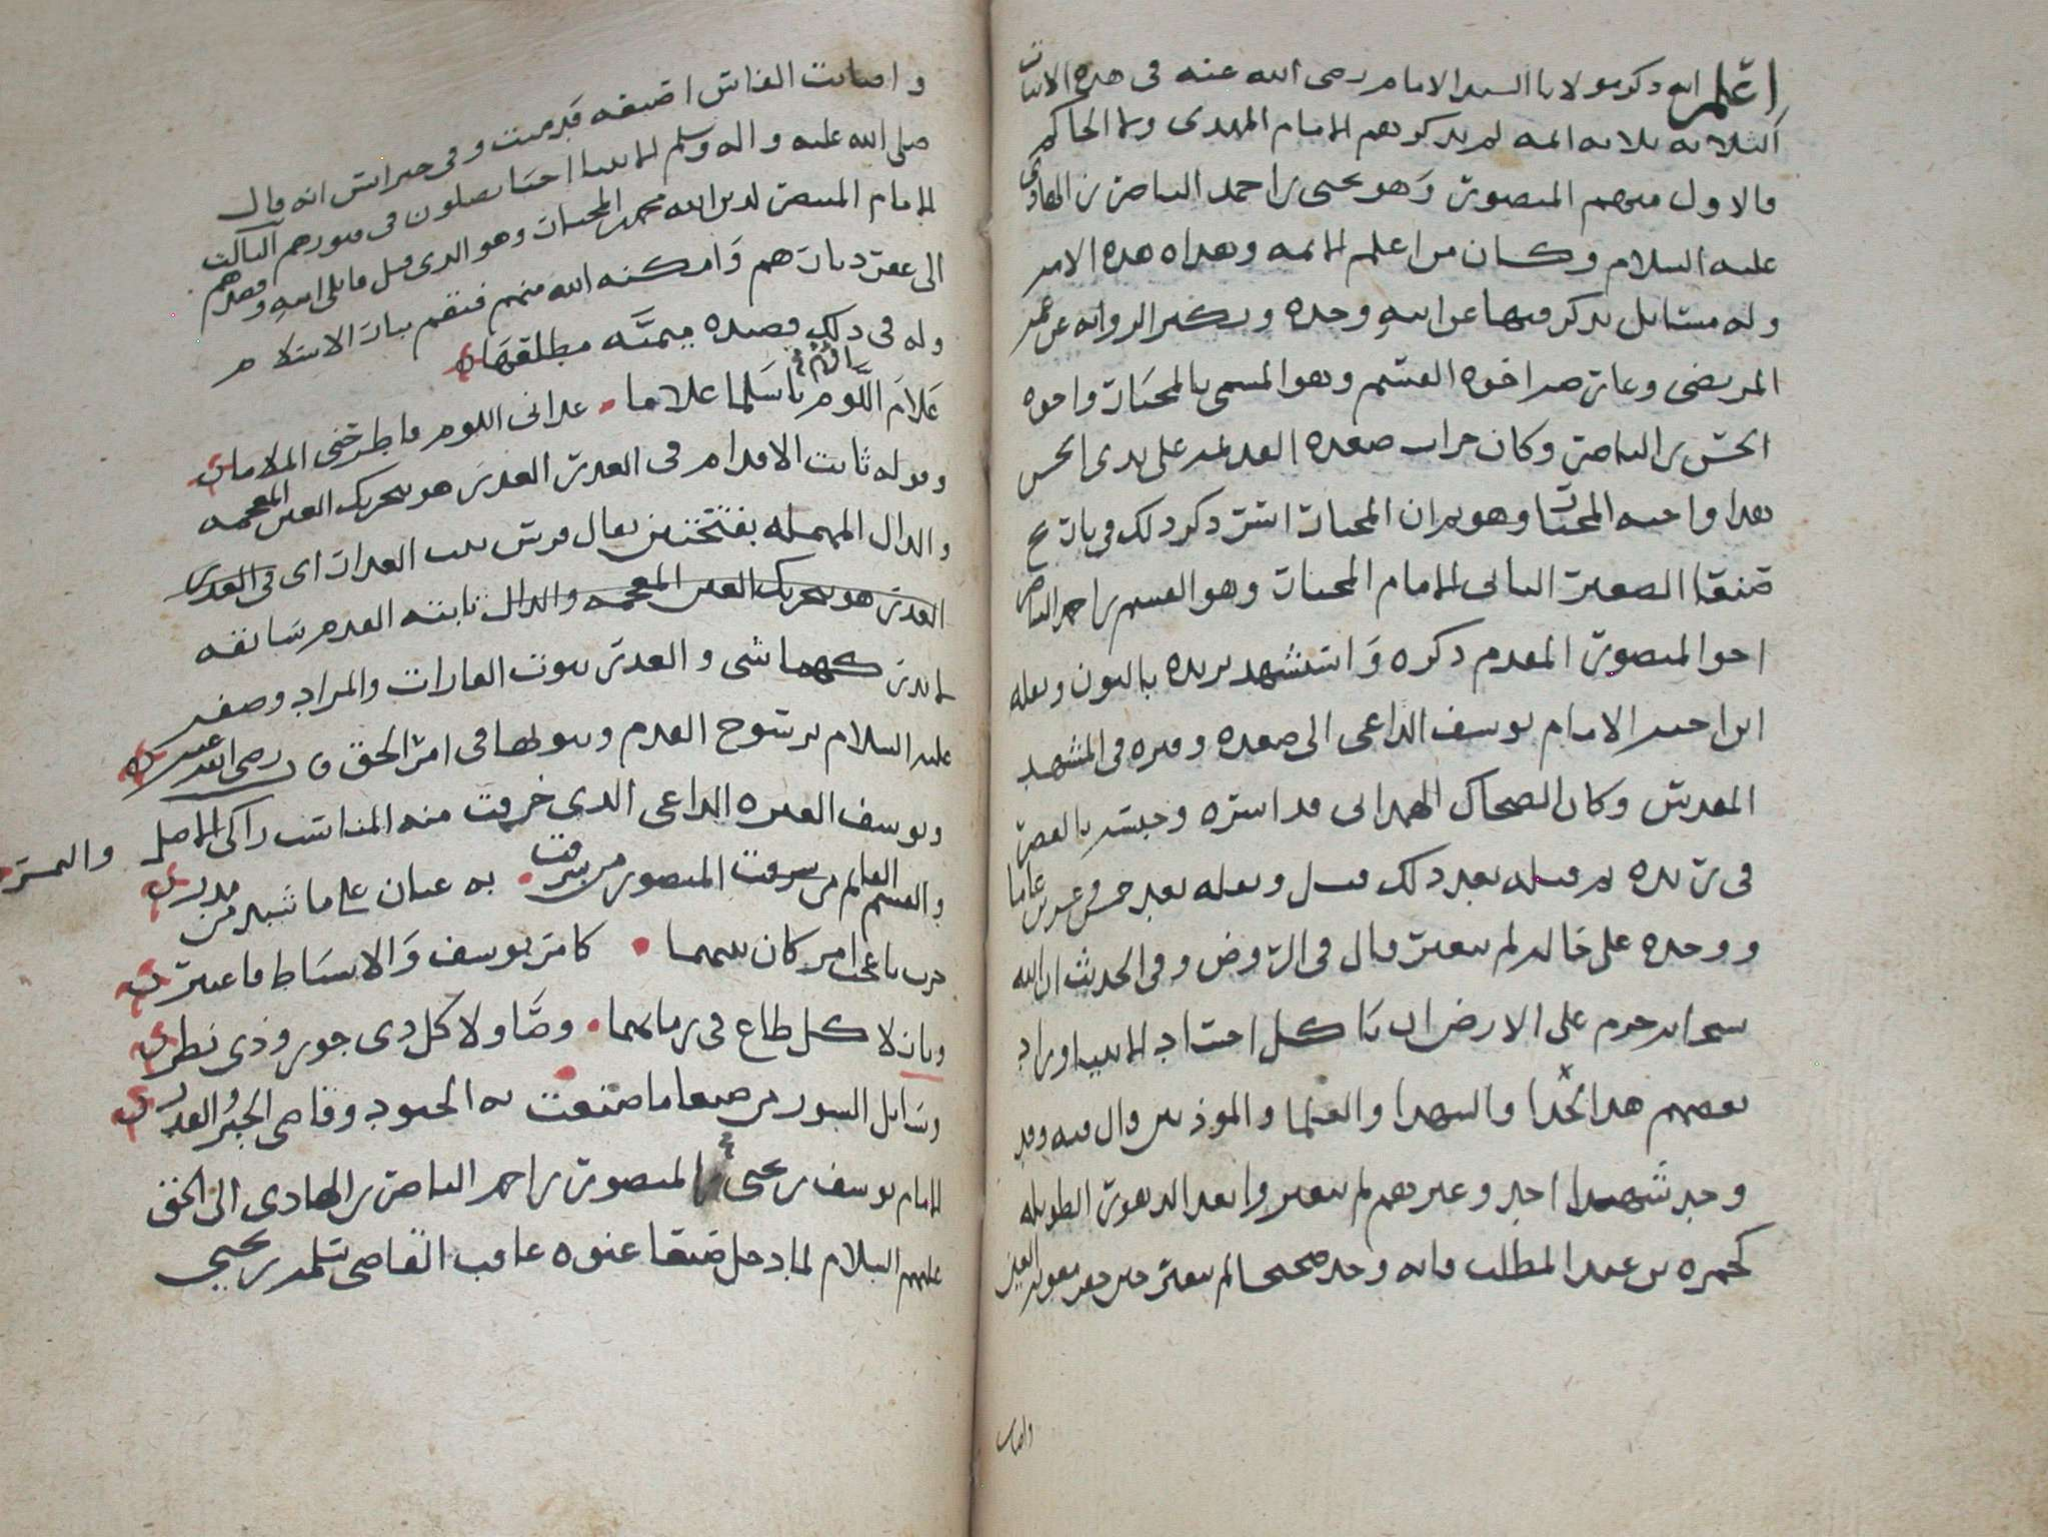 اعلم انه ذكر مولانا السيد الامام رضى الله عنه في هذه الابيات
الثلاثه ثلاثه ائمه لم يذكرهم الامام المهدى ولا الحاكم
فالاول منهم المنصور وهو يحيى بن احمد الناصر بن الهادى
عليه السلام وكان من اعلم الائمه وهداه هذه الامه
وله مسائل يذكر فيها عن ابيه وجده ويكثر الروايه عن عمه
المرتضى وعارضه اخوه القسم وهو المسمى بالمختار واخوه
الحسن بن الناصر وكان خراب صعده القديمه على يدى الحسن
هذا واخيه المختار وهو يريد ان المختار اشتر ذكر ذلك في تاريخ
صنعا الصغير الثانى الامام المختار وهو القسم بن احمد الناصر
اخو المنصور المقدم ذكره واستشهد بريده بالبون ونقله
ابن اخيه الامام يوسف الداعى الى صعده وقبره في المشهد
المقدس وكان الضحاك الهمدانى قد اسره وحبسه بالقصر
في ريده ثم قتله بعد ذلك قيل ونقله بعد خمس وعشرين عاما
ووجده على حاله لم يتغير قال في الروض وفي الحديث ان الله
سبحانه حرم على الارض ان تاكل اجساد الانبيا وزاد
بعضهم هذا الخبر والشهدا والعلما والموذنين قال فيه وقد
وجد شهدا احد وغيرهم لم يتغيروا بعد الدهور الطويله
كحمزه بن عبد المطلب فانه وجد صحيحا لم يتغير حين حفر معويه العين
واصابت
واصابت الفاس اصبعه فدميت وفي خبر انس انه قال
صلى الله عليه واله وسلم الانبيا احيا يصلون في قبورهم الثالث
الامام المنتصر لدين الله محمد بن المختار وهو الذى قتل قاتلى ابيه وقصدهم
الى عقر ديارهم وامكنه الله منهم فنقم بثار الاسلام
وله في ذلك قصيده ميميه مطلعها
علام اللوم يا سلما علاما عدانى اللوم فاطرحى الملاما
وقوله ثابت الاقدام في الغدر الغدر هو بتحريك الغين المعجمه
والدال المهمله بفتحتين يقال فرس ثبت الغدر اى في الغدر
الغدر هو بتحريك الغين المعجمه والدال ثابته القدم سابقه
لا يدر كهما شى و الغدر ثبوت الغارات والمراد وصفه
عليه السلام برسوخ القدم وثبوتها في امر الحق قال رضى الله عنه
ويوسف العتره الداعى الذى خرقت منه المناسب زاكى الاصل والثمر
والقسم العالم من سرقت المنصور من شرقت به عيان على ما شيد من مدر
حرب يا عجبا من كان بينهما كامر يوسف والاسباط فاعتبر
وبازلا كل طاغ في زمانهما وصاولا كل ذى جور وذى نظر
وسايل السور من صنعا ما صنعت به الجنود وقاضى الجبر والقدر
الامام يوسف بن يحيى المنصور بن احمد الناصر بن الهادى الى الحق
عليهم السلام لما دخل صنعا عنوه عاقب القاضى سلمه بن يحيى